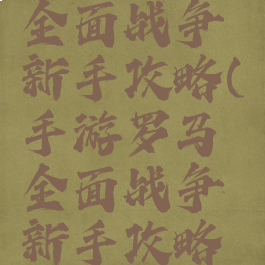 全面战争
新手攻略(
手游罗马
全面战争
新手攻略